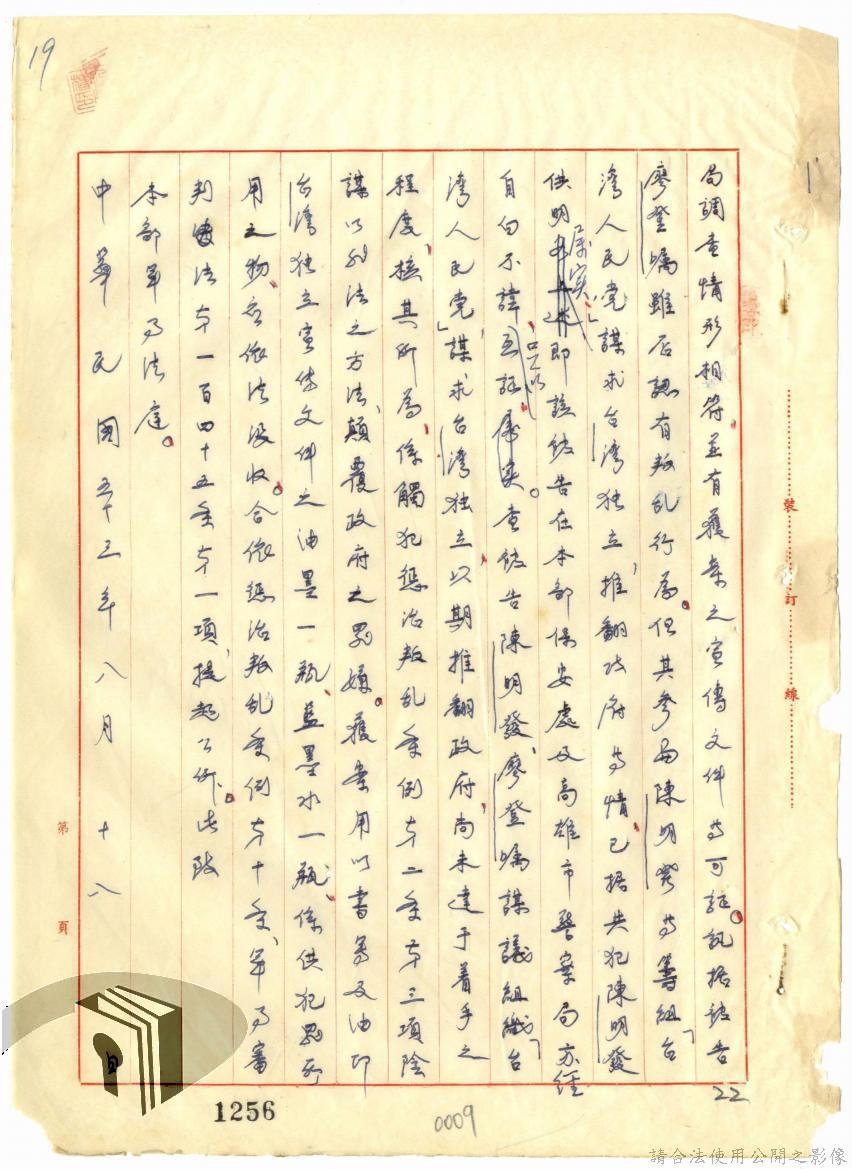 19
局調查情形相符並有獲案之宣傳文件等可証。訊据被告
廖登嘱雖否認有叛乱行為。但其參与陳明發等籌組「台
湾人民党」謀求台湾独立，推翻政府等情，已据共犯陳明發
供明屬実，即該被告在本部保安處及高雄市警察局亦經
自白不諱，屬実。查被告陳明發、廖登嘱謀議組織「台
湾人民党」謀求台湾独立，以期推翻政府，尚未達于着手之
程度，核其所為，係觸犯懲治叛乱条例第二条第三項陰
謀以非法之方法，顛覆政府之罪嫌。獲案用以書寫及油印
台湾独立宣传文件之油墨一瓶、蓝墨水一瓶，係供犯罪所
用之物，应依法没收。合依懲治叛乱条例第十条、軍事審
判法第一百四十五条第一項，提起公訴。此致
本部軍事法庭。
中華民國五十三年八月十八
裝訂線
第 頁
22
1256
0009
請合法使用公開之影像